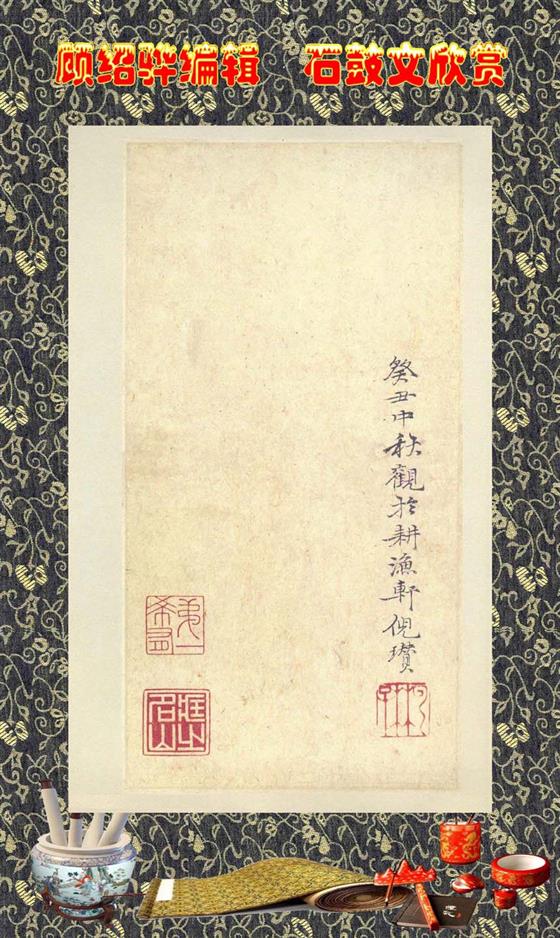 顾绍骅编辑 石鼓文欣赏
癸丑中秋觀於耕漁軒倪瓚
第一希有